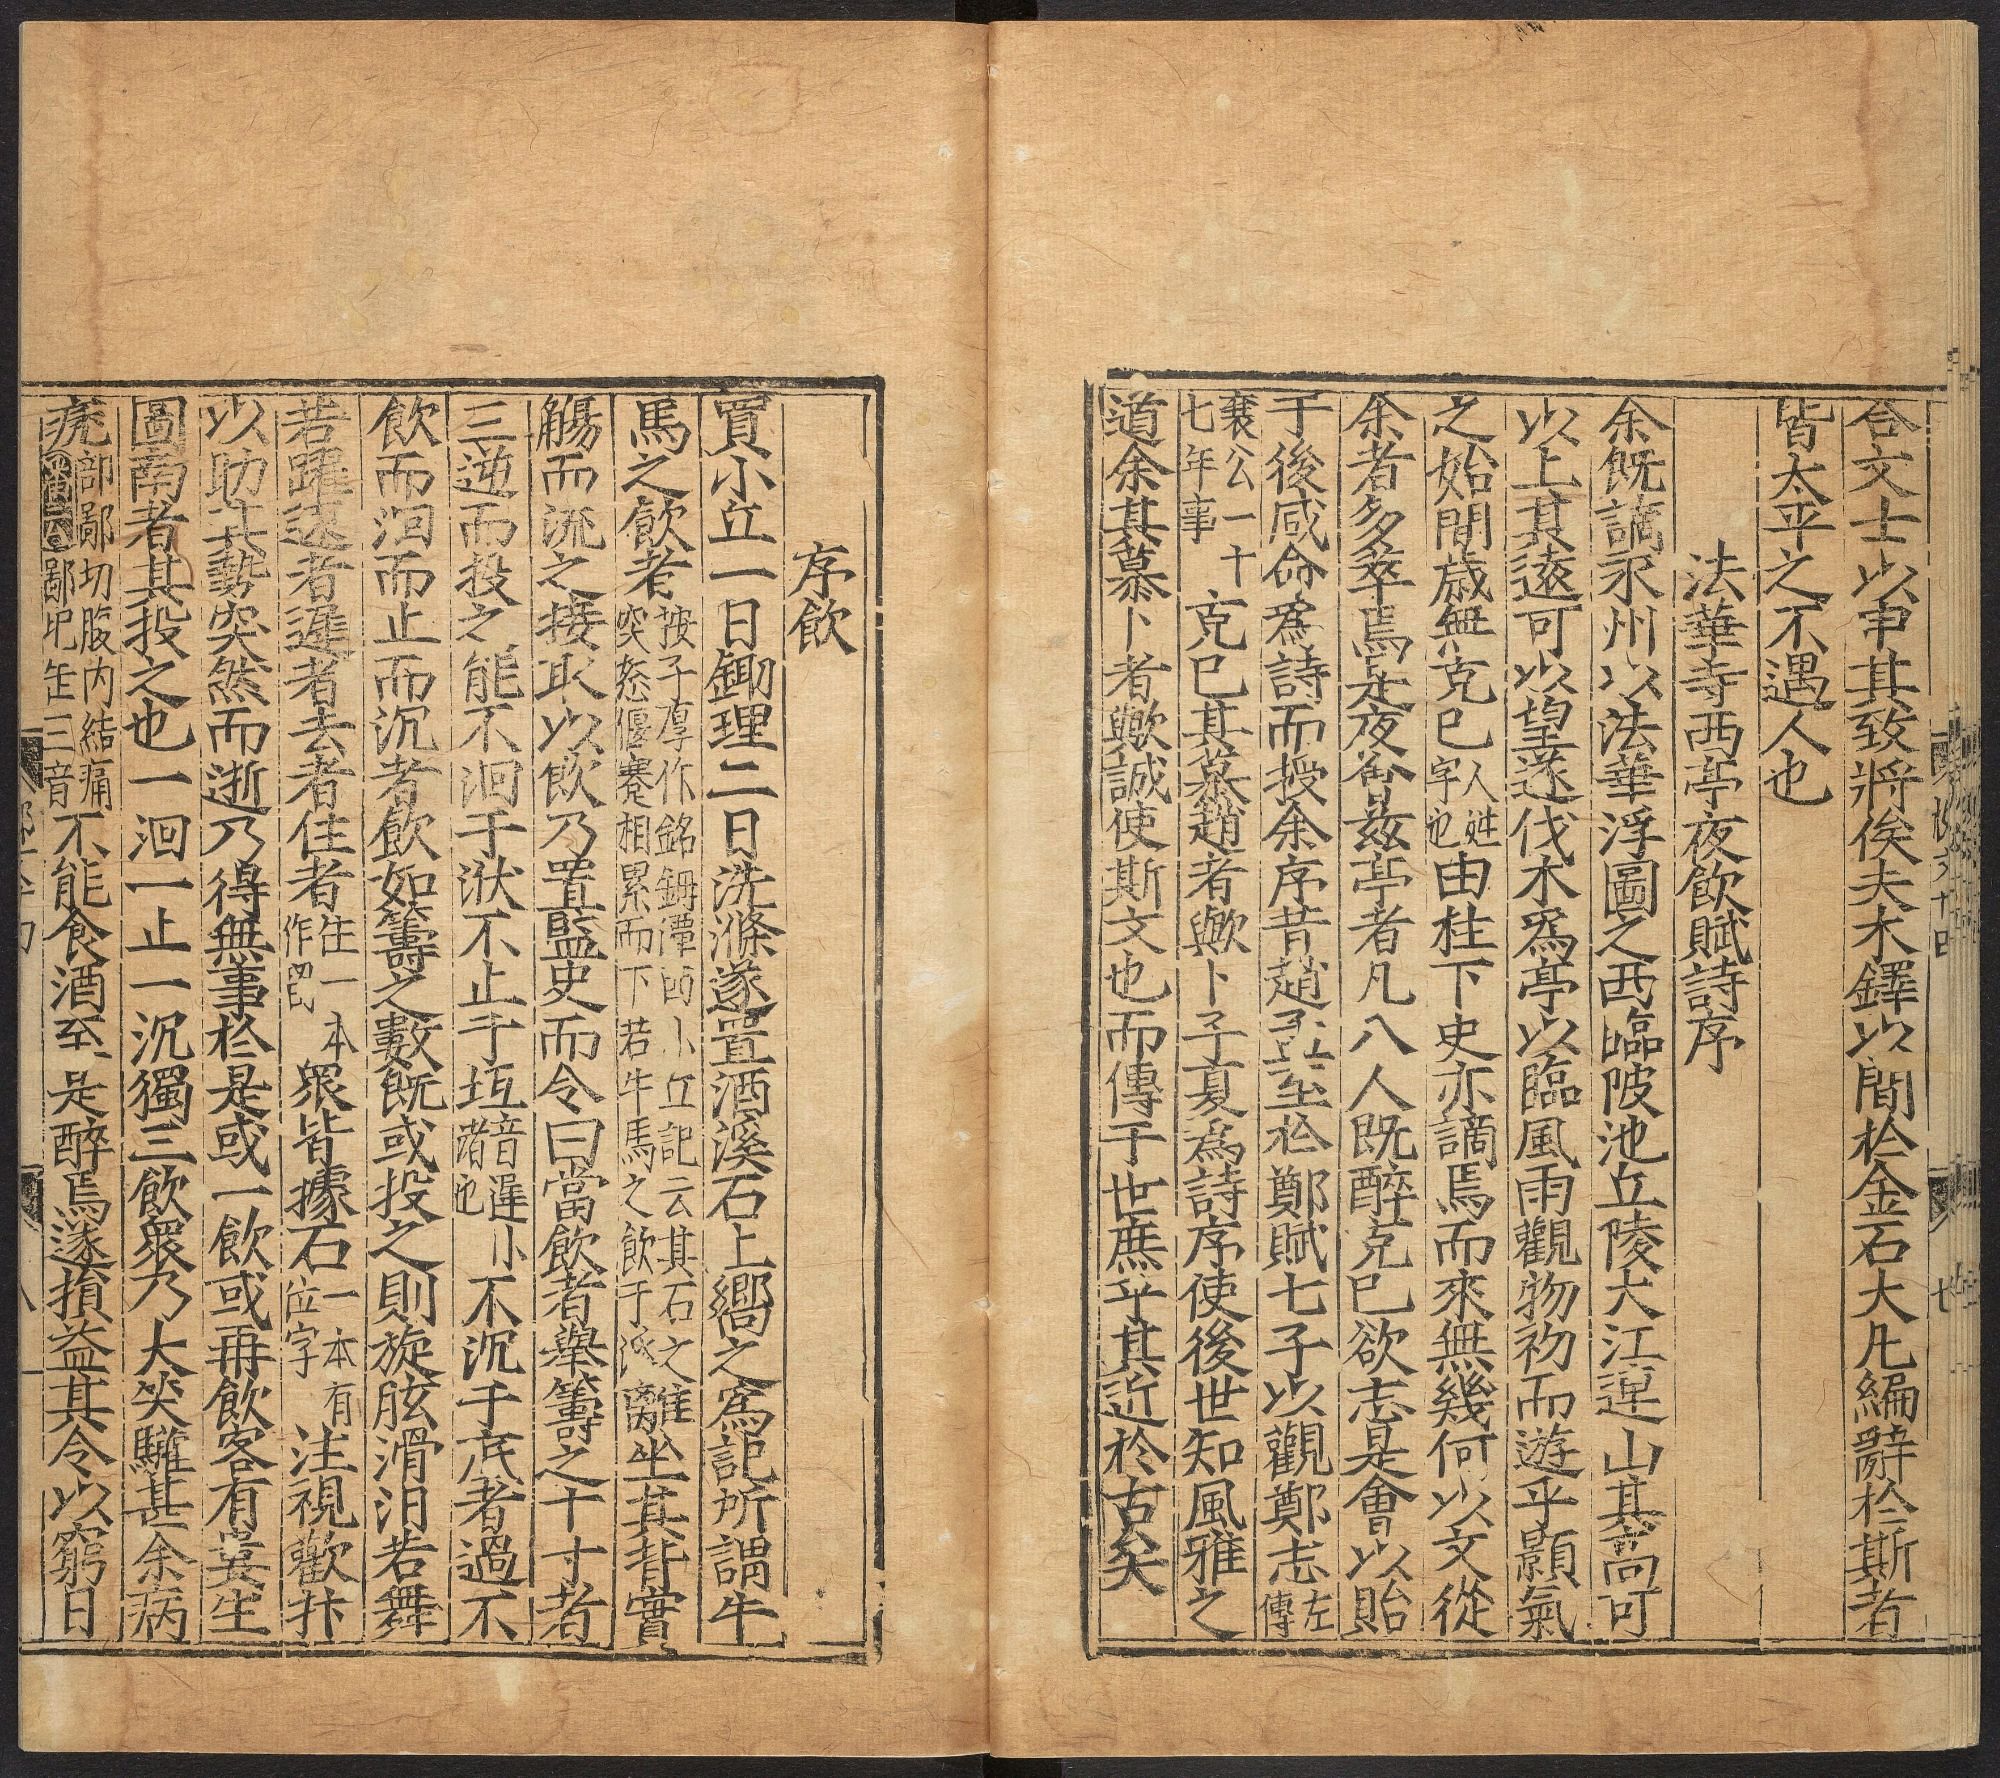 合文士以申其致將俟夫木鐸以間於金石大凡編辭於斯者
皆太平之不遇人也
法華寺西亭夜飲賦詩序
余旣謫永州以法華浮圖之西臨陂池丘陵大江連山其髙可
以上其遠可以望遂伐木爲亭以臨風雨觀物初而遊乎顥氣
之始間歳無克巳人姓字也由柱下史亦謫焉而來無幾何以文從
余者多萃焉是夜㑹兹亭者凡八人既醉克巳欲志是會以貽
于後咸命爲詩而授余序昔趙孟至於鄭賦七子以觀鄭志左傳
襄公二十七年事克巳其慕趙者歟卜子夏爲詩序使後世知風雅之
道余其慕卜者歟誠使斯文也而傳于世庶乎其近於古矣
序飲
買小丘一日鋤理二日洗滌遂置酒溪石上嚮之爲記所謂牛
馬之飲者按子厚作鈷鉧潭西小丘記云其石之突怒偃蹇相累而下若牛馬之飲于溪離坐其背實
觴而流之接取以飲乃置監史而令曰當飲者舉籌之十寸者
三逆而投之能不洄于洑不止于坻音遲小渚也不沉于底者過不
飲而洄而止而沉者飲如籌之數旣或投之則旋眩滑汨若舞
若躍速者遲者去者住者住一本作四民衆皆據石一本有位字注視歡抃
以助其勢突然而逝乃得無事於是或一飲或再飲客有婁生
圖南者其投之也一洄一止一沉獨三飲衆乃大笑驩甚余病
痞部鄙切腹内結痛潘云鄙圯缶三音不能食酒至是醉焉遂損益其令以窮日